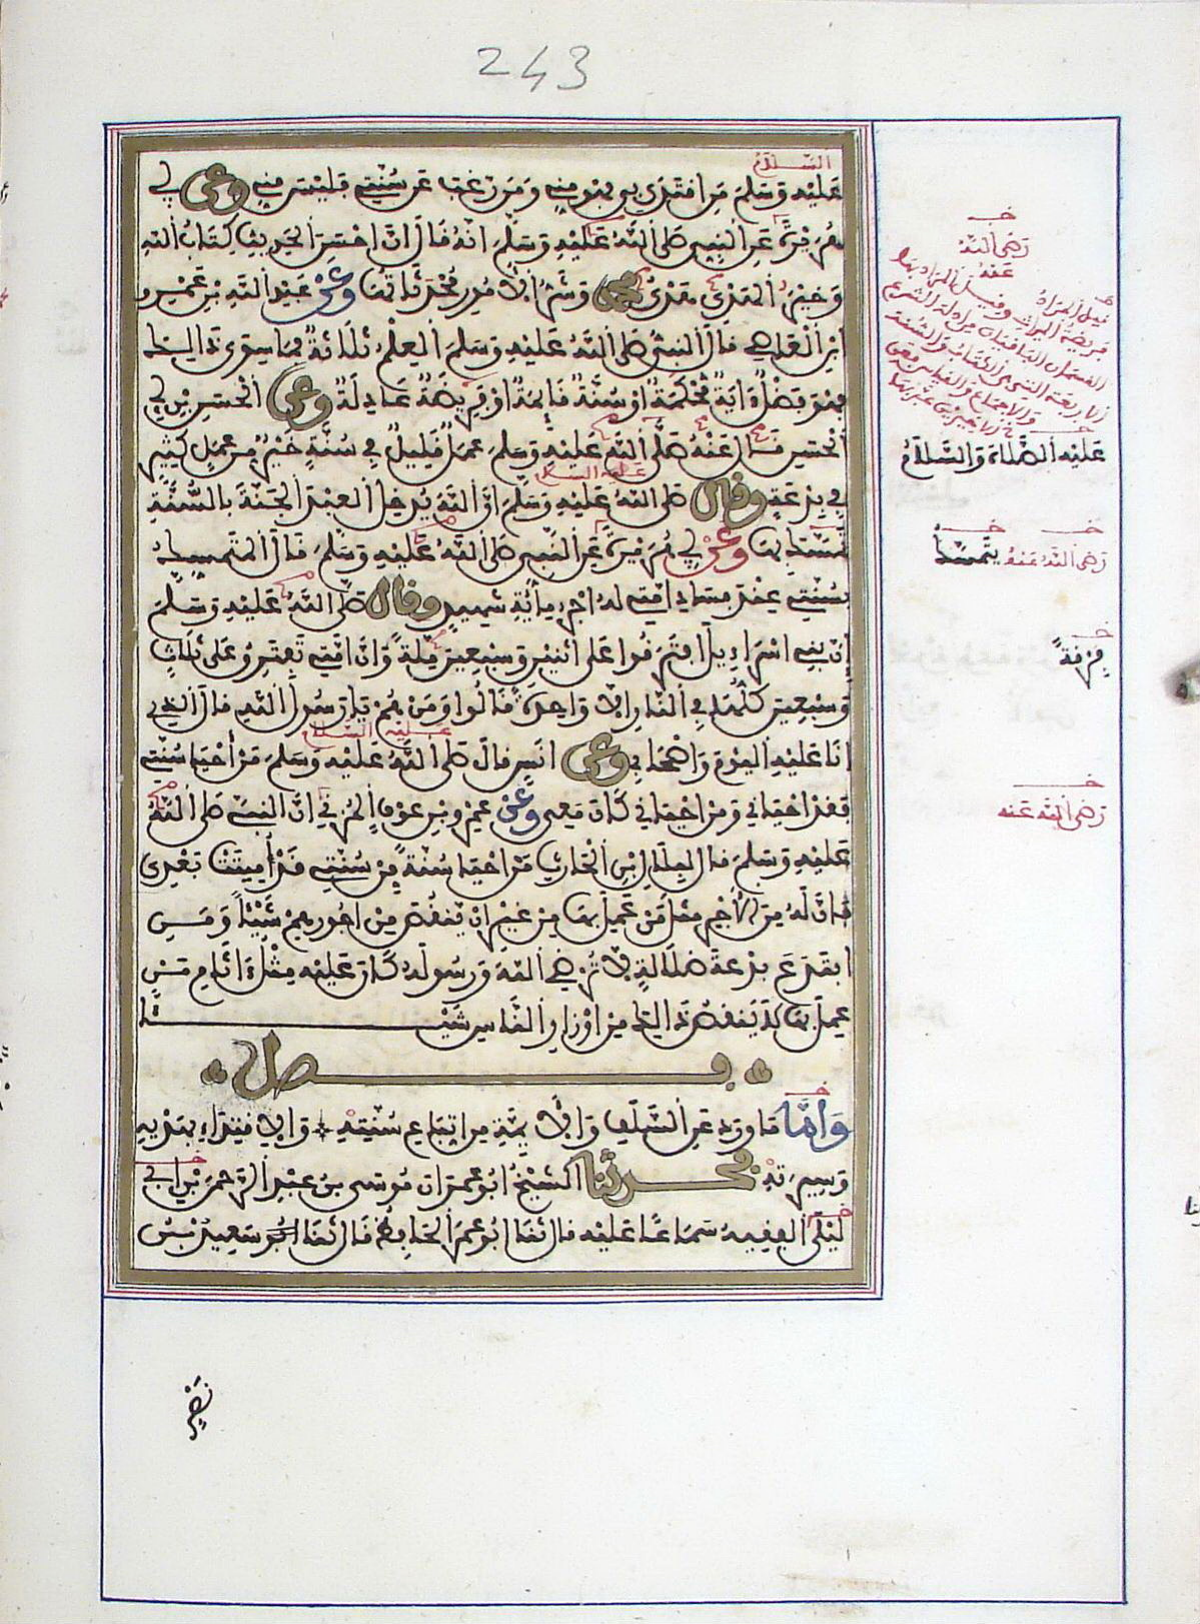 243
السَّلَامُ
عَلَيْهِ وَسَلَّمَ مَنِ اقْتَدَى بِي فَهُوَ مِنِّي وَمَنْ رَغِبَ عَنْ سُنَّتِي فَلَيْسَ مِنِّي وعن أبي
هُرَيْرَةَ عَنِ النَّبِيِّ صَلَّى اللَّهُ عَلَيْهِ وَسَلَّمَ أَنَّهُ قَالَ إِنَّ أَحْسَنَ الْحَدِيثِ كِتَابُ اللَّهِ
وَخَيْرُ الْهَدْيِ هَدْيُ محمد وَشَرُّ الْأُمُورِ مُحْدَثَاتُهَا وَعَنْ عَبْدِ اللَّهِ بْنِ عَمْرِو
ابْنِ الْعَاصِي قَالَ النَّبِيُّ صَلَّى اللَّهُ عَلَيْهِ وَسَلَّمَ الْعِلْمُ ثَلَاثَةٌ فَمَا سِوَى ذَالِكَ
فَهُوَ فَضْلٌ ءَايَةٌ مُحْكَمَةٌ أَوْ سُنَّةٌ قَائِمَةٌ أَوْ فَرِيضَةٌ عَادِلَةٌ وعن الْحَسَنِ بْنِ أَبِي
الْحَسَنِ قَالَ عَنْهُ صَلَّى اللَّهُ عَلَيْهِ وَسَلَّمَ عَمَلٌ قَلِيلٌ فِي سُنَّةٍ خَيْرٌ مِنْ عَمَلٍ كَثِيرٍ
عليه السلام
فِي بِدْعَةٍ وقال صَلَّى اللَّهُ عَلَيْهِ وَسَلَّمَ إِنَّ اللَّهَ يُدْخِلُ الْعَبْدَ الْجَنَّةَ بِالسُّنَّةِ
تَمَسَّكَ بِهَا وَعَنْ أَبِي هُرَيْرَةَ عَنِ النَّبِيِّ صَلَّى اللَّهُ عَلَيْهِ وَسَلَّمَ قَالَ الْمُتَمَسِّكُ
بِسُنَّتِي عِنْدَ فَسَادِ أُمَّتِي لَهُ أَجْرُ مِائَةِ شَهِيدٍ وقال صَلَّى اللَّهُ عَلَيْهِ وَسَلَّمَ
إِنَّ بَنِي إِسْرَاءِيلَ افْتَرَقُوا عَلَى اثْنَيْنِ وَسَبْعِينَ مِلَّةً وَإِنَّ أُمَّتِي تَفْتَرِقُ عَلَى ثَلَاثٍ
وَسَبْعِينَ كُلُّهَا فِي النَّارِ إِلَّا وَاحِدَةً قَالُوا وَمَنْ هُمْ يَا رَسُولَ اللَّهِ قَالَ الَّذِي
عليه السلام
أَنَا عَلَيْهِ الْيَوْمَ وَأَصْحَابِي وعن أَنَسٍ قَالَ صَلَّى اللَّهُ عَلَيْهِ وَسَلَّمَ مَنْ أَحْيَا سُنَّتِي
فَقَدْ أَحْيَانِي وَمَنْ أَحْيَانِي كَانَ مَعِي وَعَنْ عَمْرِو بْنِ عَوْفٍ الْمُزَنِيِّ أَنَّ النَّبِيَّ صَلَّى اللَّهُ
عَلَيْهِ وَسَلَّمَ قَالَ لِبِلَالِ ابْنِ الْحَارِثِ مَنْ أَحْيَا سُنَّةً مِنْ سُنَّتِي قَدْ أُمِيتَتْ بَعْدِي
فَإِنَّ لَهُ مِنَ الْأَجْرِ مِثْلَ مَنْ عَمِلَ بِهَا مِنْ غَيْرِ أَنْ يَنْقُصَ مِنْ أُجُورِهِمْ شَيْئًا وَمَنِ
ابْتَدَعَ بِدْعَةَ ضَلَالَةٍ لَا تُرْضِي اللَّهَ وَرَسُولَهُ كَانَ عَلَيْهِ مِثْلُ ءَاثَامِ مَنْ
عَمِلَ بِهَا لَا يَنْقُصُ ذَالِكَ مِنْ أَوْزَارِ النَّاسِ شَيْئًا
فصل
وَأَمَّا مَا وَرَدَ عَنِ السَّلَفِ وَالْأَئِمَّةِ مِنِ اتِّبَاعِ سُنَّتِهِ وَالِاقْتِدَاءِ بِهَدْيِهِ
وَسِيرَتِهِ فحدثنا الشَّيْخُ أَبُو عِمْرَانَ مُوسَى بْنُ عَبْدِ الرَّحْمَنِ بْنِ أَبِي
تَلِيدٍ الْفَقِيهُ سَمَاعًا عَلَيْهِ قَالَ ثَنَا أَبُو عُمَرَ الْحَافِظُ قَالَ ثَنَا أَبُو سَعِيدِ بْنُ
نَصْرٍ
رَضِيَ اللَّهُ
عَنْهُ
عَلَيْهِ الصَّلَاةُ وَالسَّلَامُ
رَضِيَ اللَّهُ عَنْهُ يَتَمَسَّكُ
فِرْقَةً
رَضِيَ اللَّهُ عَنْهُ